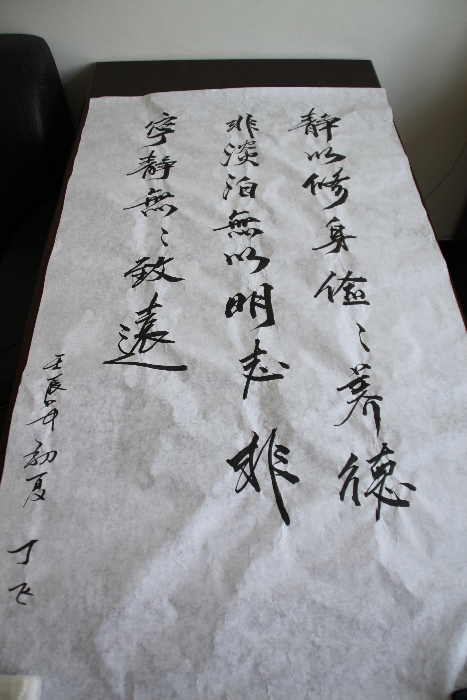 静以修身儉〻养德
非淡泊無以明志非
寧静無〻致遠
壬辰年初夏
丁飞